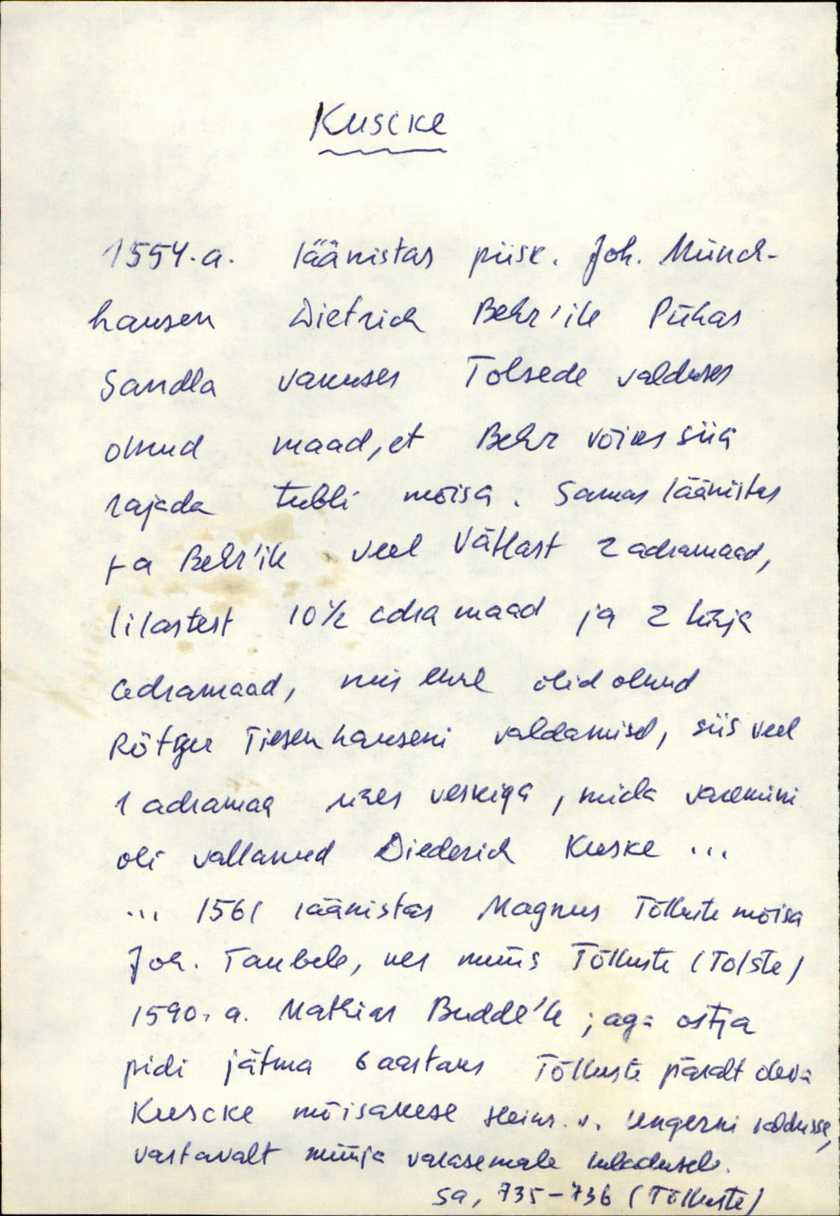 Kuscke
1554.a. läänistas piisk. Joh. Münch-
hausen Dietrich Behr'ile Pühas
Sandla vakuses Tolsede valduses
olnud maad, et Behr võiks siia
rajada tubli mõisa. Samas läänistas
ta Behr'ile veel Vätlast 2 adramaad,
lilastest 10½ adra maad ja 2 künja
adramaad, mis enne olid olnud
Rötger Tiesenhauseni valdamisel, siis veel
1 adramaa ühes veskiga, mida varemini
oli vallanud Diederich Kuske ...
... 1561 läänistas Magnus Tõlluste mõisa
Joh. Taubele, kes müüs Tõlluste (Tolste)
1590. a. Mathias Budde'le ; aga ostja
pidi jätma 6 aastaks Tõlluste päralt oleva
Kuscke mõisakese Heinr. v. Ungerni valdusse,
vastavalt müüja varasemale lubadusele.
Sa, 735-736 (Tõlluste)